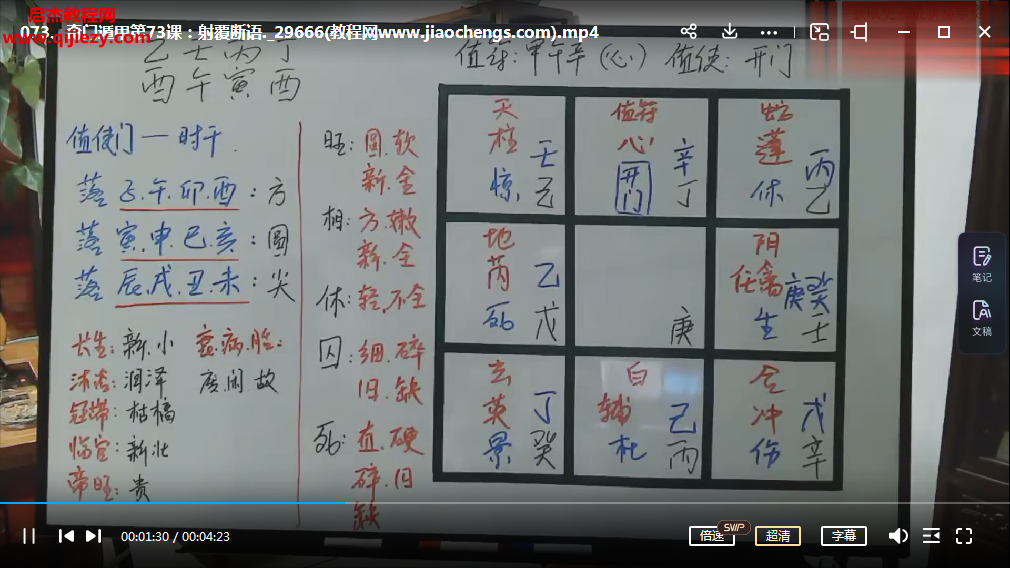 启杰教程网
www.qijiezy.com
073、奇门遁甲第73课：射覆断语._29666(教程网www.jiaochengs.com).mp4
乙壬丙丁
酉午寅酉
值符:甲午辛(心) 值使:开门
值使门一时干.
落子.午.卯.酉:方
落寅.申.巳.亥:圆
落辰.戌.丑.未:尖
长生:新.小
沐浴:润泽
临官:新.壮
帝旺:贵
衰.病.胎:
废.闲.故
旺:圆.软
新.全
相:方.嫩
新.全
休:轻.不全
囚:细.碎
旧.缺
死:直.硬
碎.旧
缺
天
柱 壬
惊 己
值符
心 辛
开门 丁
蛇
蓬 丙
休 乙
地
芮 乙
死 戊
庚
阴
任禽 庚癸
生 壬
玄
英 丁
景 癸
白
辅 己
杜 丙
合
冲 戊
伤 辛
笔记
文稿
00:01:30 / 00:04:23
倍速
SVIP
超清
字幕